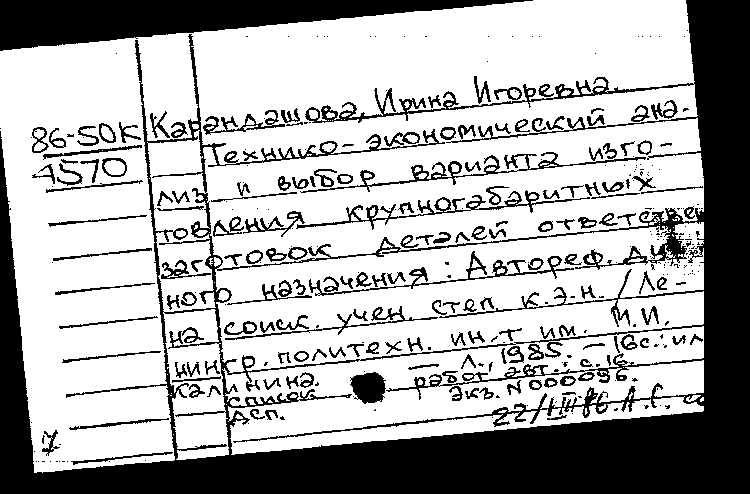 86-50К Карандашова, Ирина Игоревна.
4570 Технико-экономический ана-
лиз и выбор варианта изго-
товления крупногабаритных
заготовок деталей ответствен
ного назначения: Автореф. ди
на соиск. учен. степ. к.э.н. / Ле-
нингр. политехн. ин-т им. М.И.
Калинина. — Л., 1985. — 16с.: ил
список работ авт.: с.16.
Дсп. Экз. N 000096.
22/III 86. А.С.
7